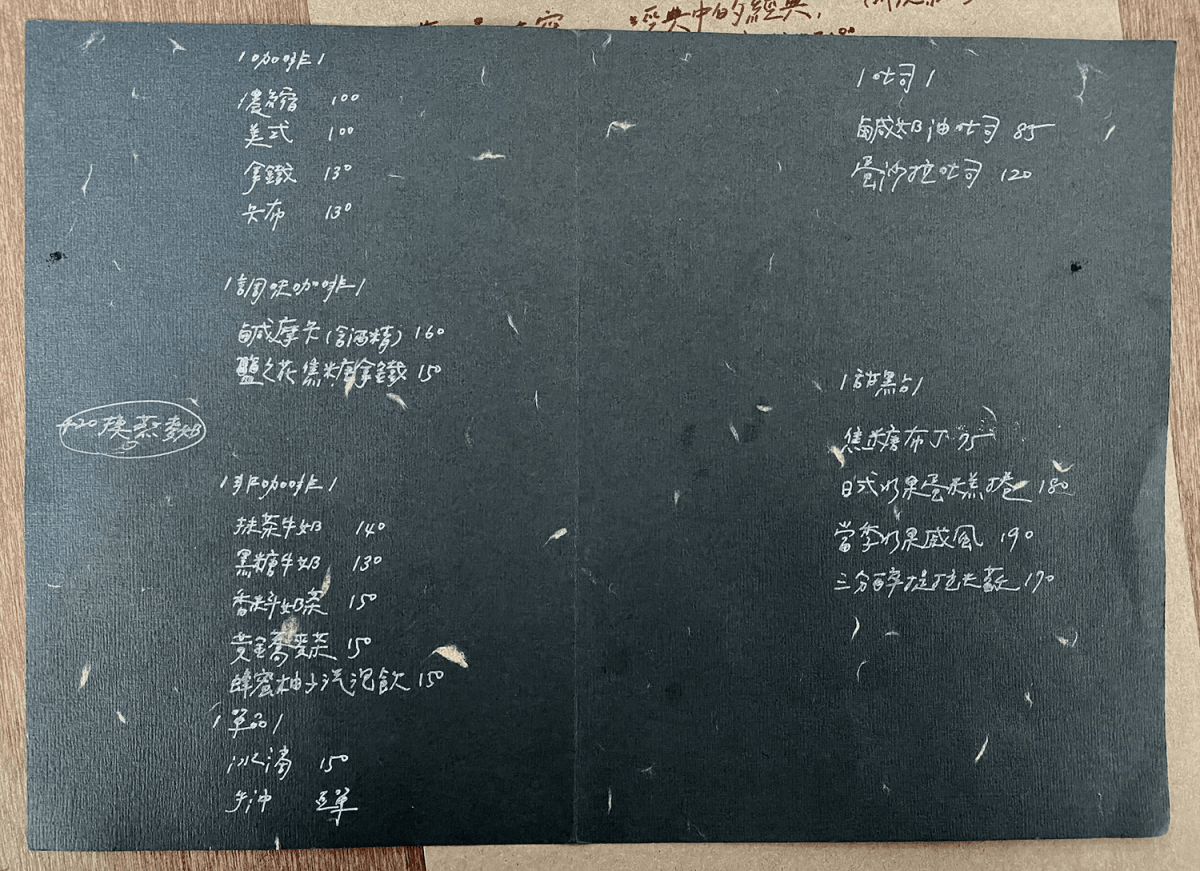 經典中的經典,
/咖啡/
濃縮 100
美式 100
拿鐵 130
卡布 130
/調味咖啡/
鹹摩卡(含酒精) 160
鹽之花焦糖拿鐵 150
+20換燕麥奶
/非咖啡/
抹茶牛奶 140
黑糖牛奶 130
香料奶茶 150
黃金蕎麥茶 150
蜂蜜柚子汽泡飲 150
/單品/
冰滴 150
手沖 豆單
/吐司/
鹹奶油吐司 85
蛋沙拉吐司 120
/甜點/
焦糖布丁 95
日式水果蛋糕捲 180
當季水果戚風 190
三分醉提拉米蘇 170